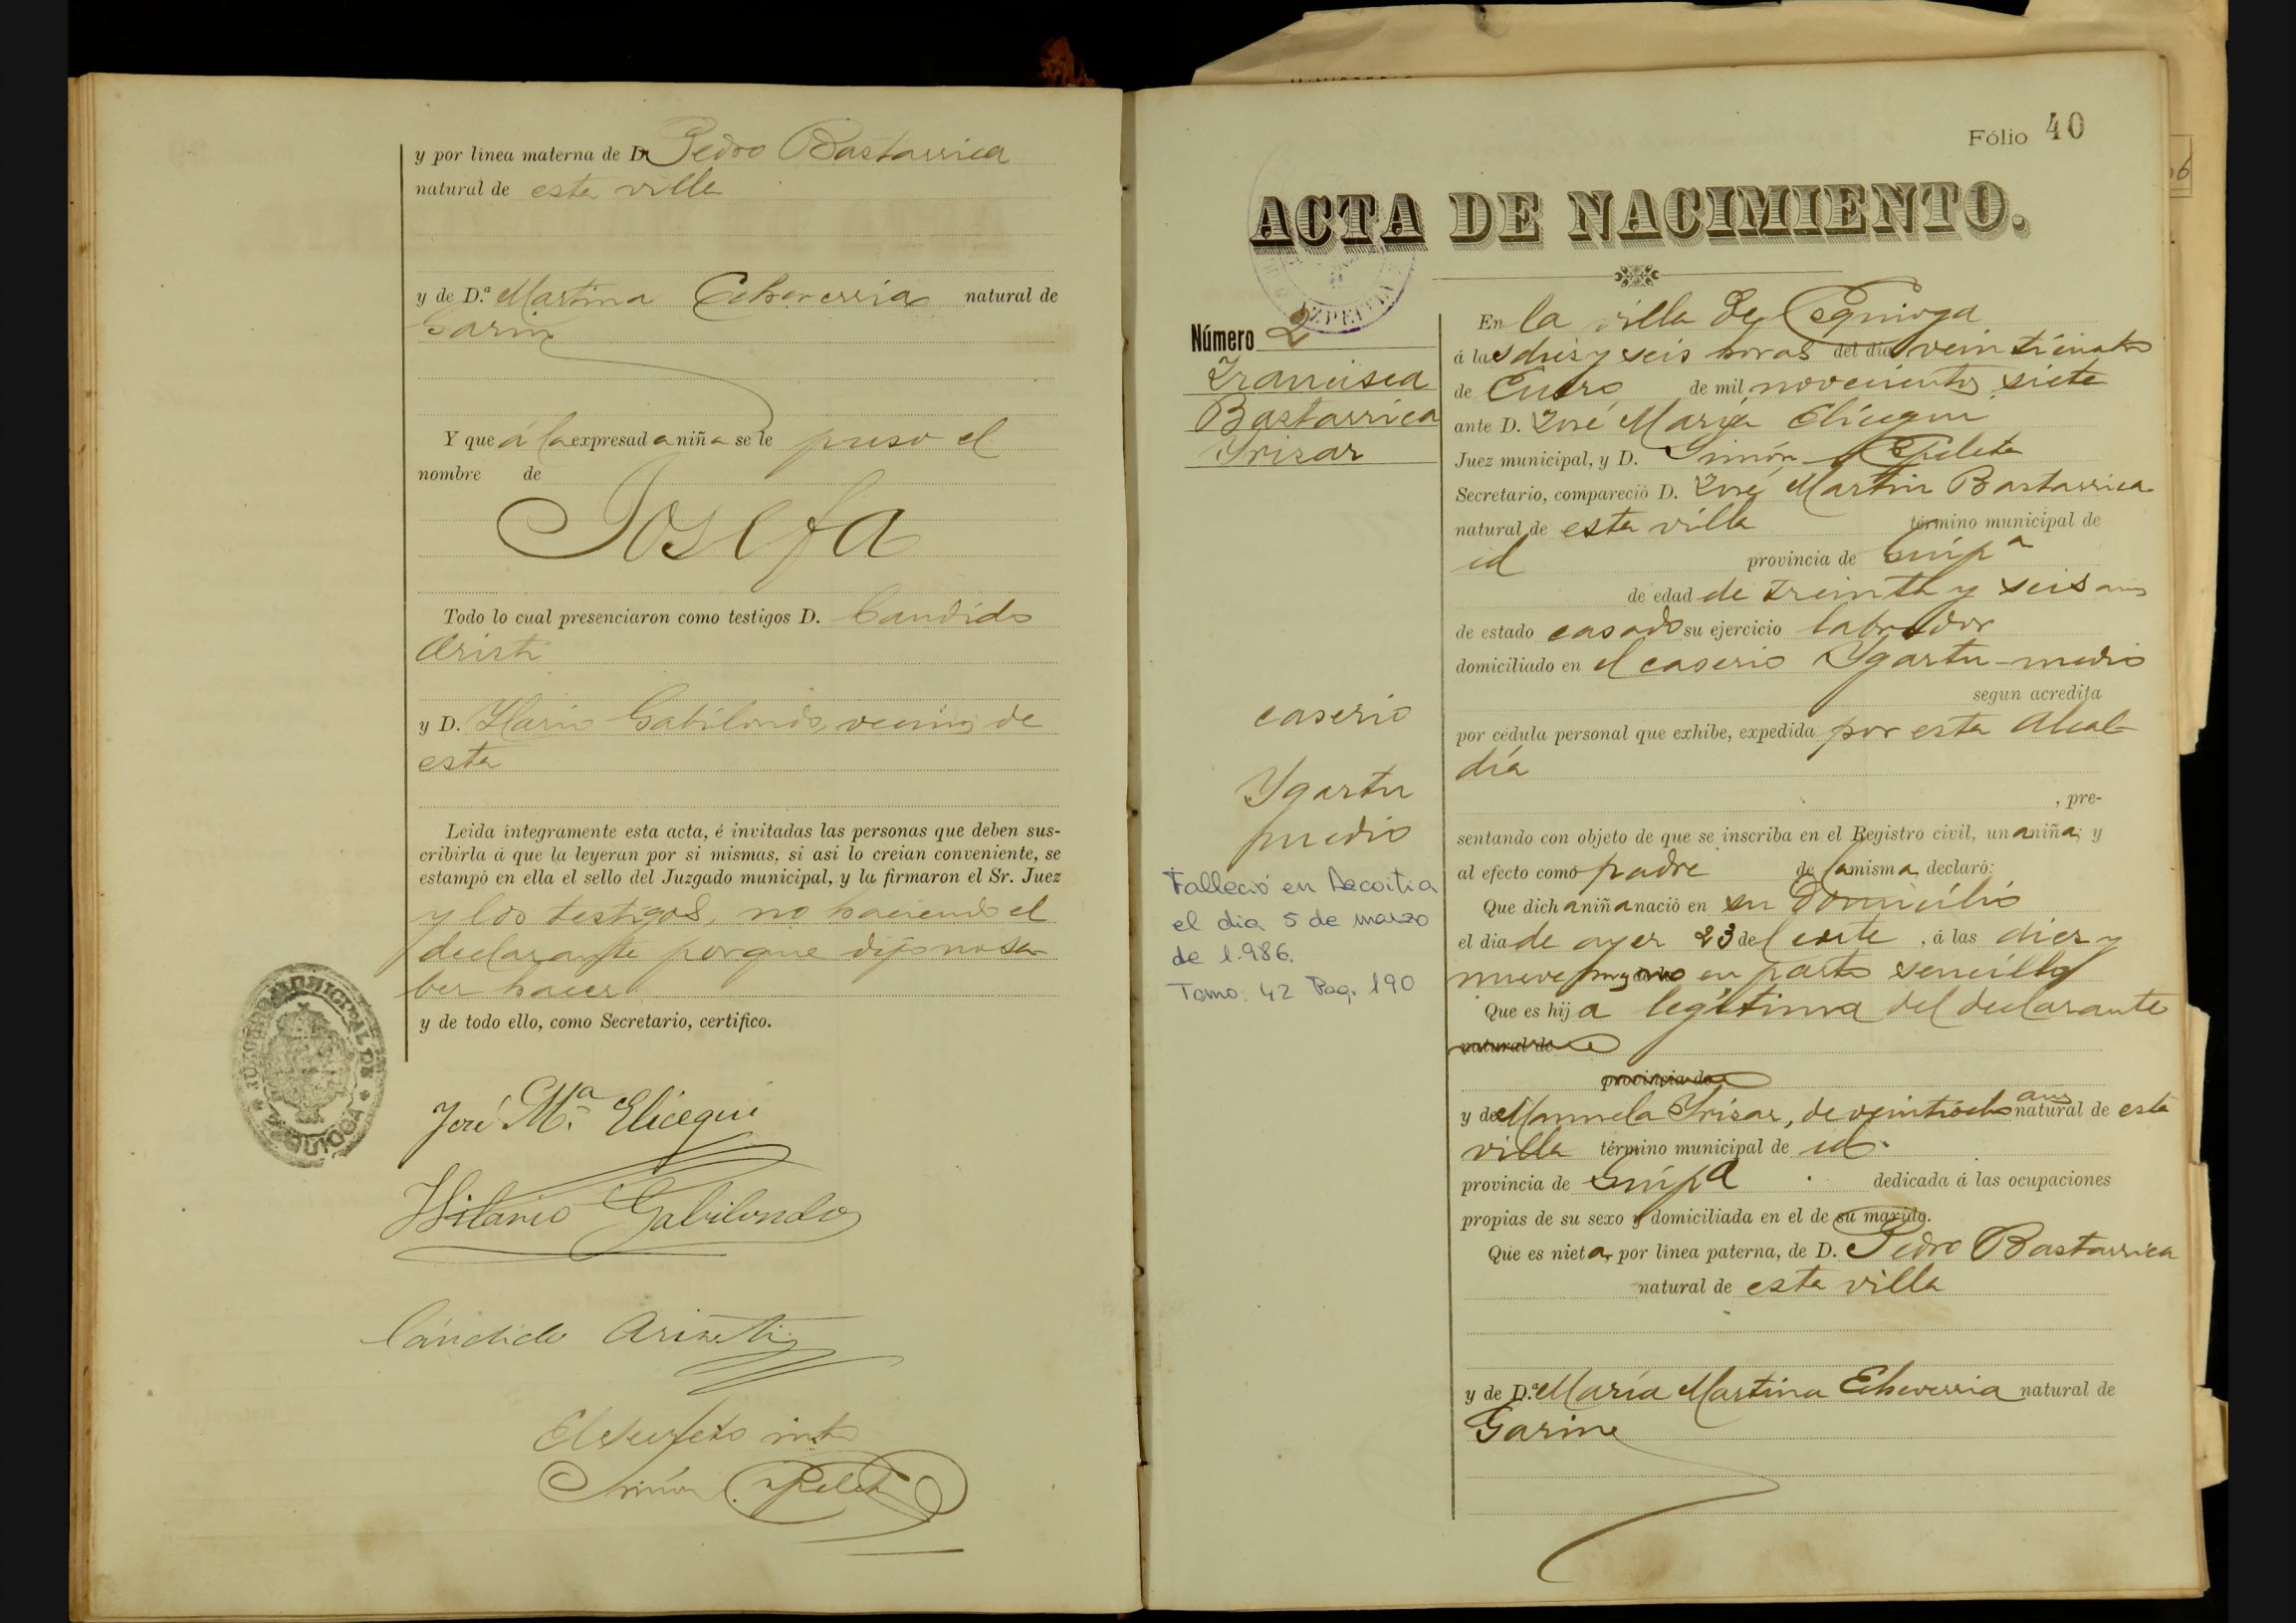 y por línea materna de D. Pedro Bastarrica
natural de esta villa
y de D.ª Martina Echeverria natural de
Garin
Y que á la expresada niña se le puso el
nombre de
Josefa
Todo lo cual presenciaron como testigos D. Candido
Aristi
y D. Ilario Gabilondo, vecinos de
esta
Leida íntegramente esta acta, é invitadas las personas que deben sus-
cribirla á que la leyeran por si mismas, si asi lo creian conveniente, se
estampó en ella el sello del Juzgado municipal, y la firmaron el Sr. Juez
y los testigos, no haciendo el
declarante porque dijo no sa-
ber hacer
y de todo ello, como Secretario, certifico.
JUZGADO MUNICIPAL DE
José M.ª Elicegui
Hilario Gabilondo
Cándido Aristi
Simón
Fólio 40
ACTA DE NACIMIENTO.
AZPEITIA
Número 2
Francisca
Bastarrica
Yrizar
caserio
Ygartu
medio
Falleció en Azcoitia
el dia 5 de marzo
de 1.986.
Tomo: 42 Pag. 190
En la villa de Ezquioga
á las dies y seis horas del dia veinticuatro
de Enero de mil novecientos siete
ante D. José María Elicegui
Juez municipal, y D. Simón
Secretario, compareció D. José Martin Bastarrica
natural de esta villa término municipal de
id provincia de Guipª
de edad de treinta y seis años
de estado casado su ejercicio labrador
domiciliado en el caserio Ygartu-medio
segun acredita
por cédula personal que exhibe, expedida por esta Alcal-
día
, pre-
sentando con objeto de que se inscriba en el Registro civil, una niña; y
al efecto como padre de la misma, declaró:
Que dicha niña nació en su domicilio
el dia de ayer 23 del corte, á las dies y
nueve en parto sencillo
Que es hija legítima del declarante
natural de
provincia de
y de Manuela Yrizar, de veintiocho años natural de esta
villa término municipal de id.
provincia de Guipª dedicada á las ocupaciones
propias de su sexo y domiciliada en el de su marido.
Que es nieta, por línea paterna, de D. Pedro Bastarrica
natural de esta villa
y de D.ª María Martina Echeverria natural de
Garin